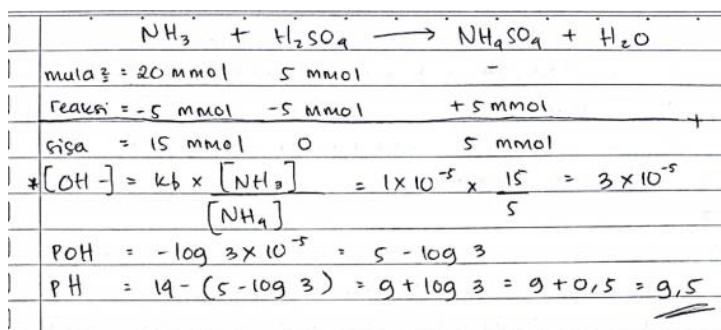 NH₃ + H₂SO₄ ⟶ NH₄SO₄ + H₂O
mula² = 20 mmol 5 mmol -
reaksi = -5 mmol -5 mmol +5 mmol +
sisa = 15 mmol 0 5 mmol
*[OH-] = kb x [NH₃] / [NH₄] = 1x10⁻⁵ x 15 / 5 = 3 x 10⁻⁵
POH = -log 3x10⁻⁵ = 5 - log 3
PH = 14 - (5 - log 3) = 9 + log 3 = 9 + 0,5 = 9,5